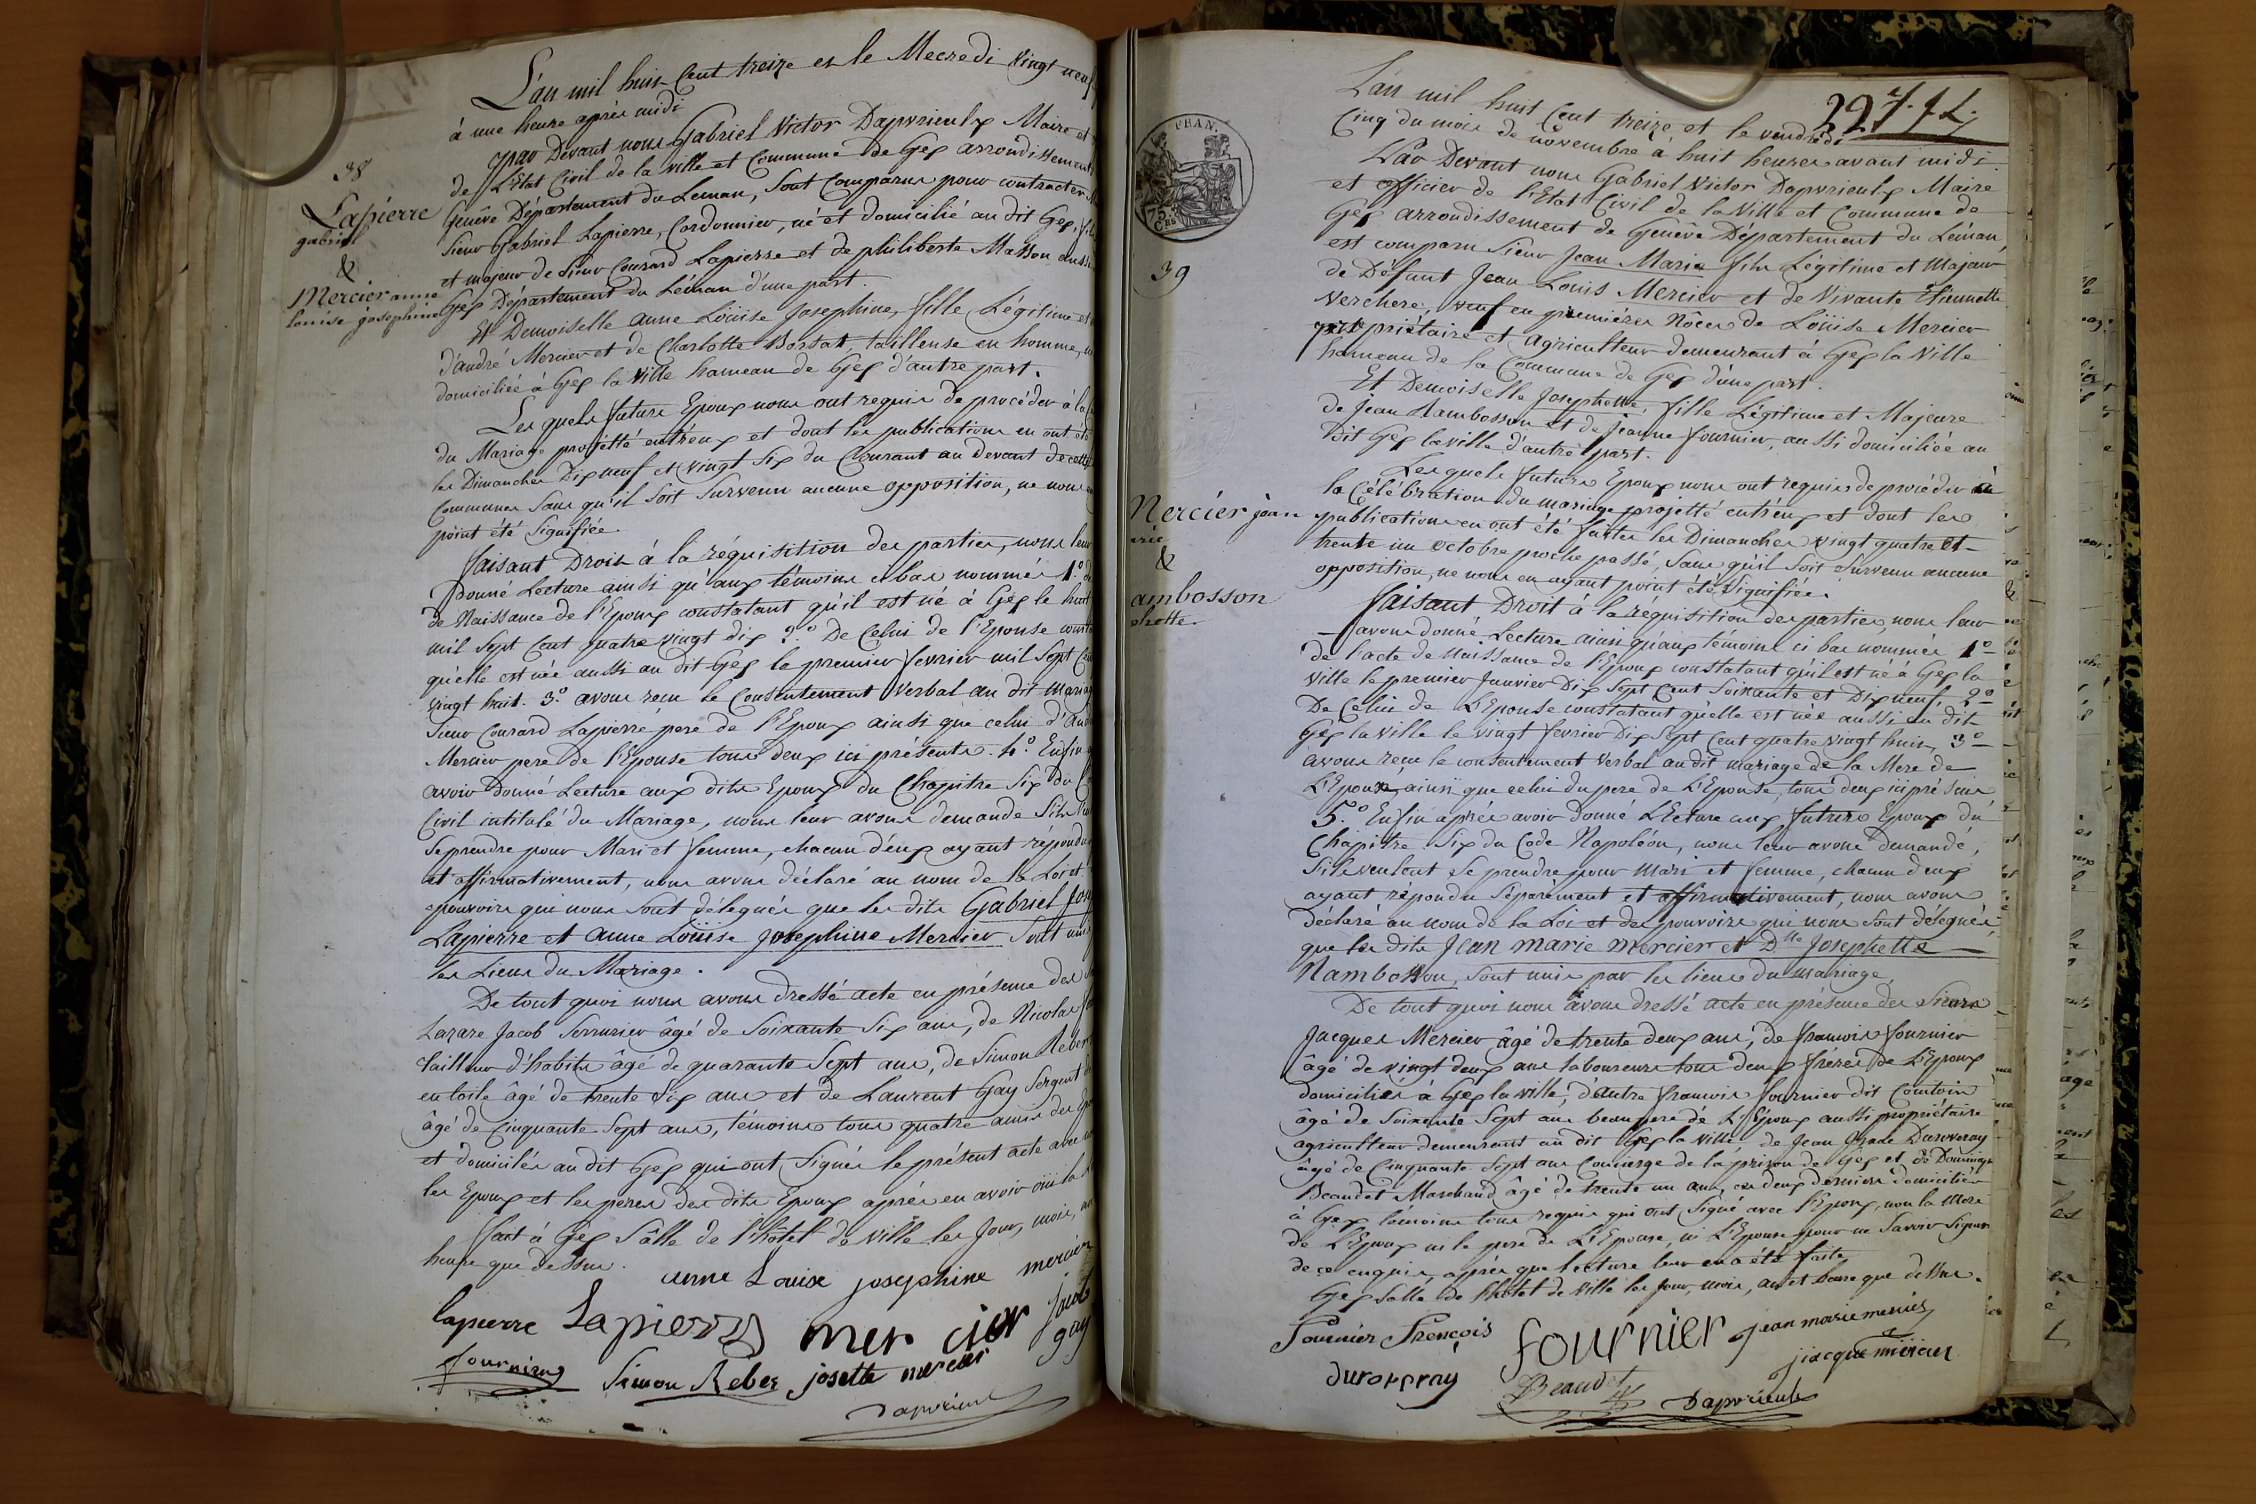 L'an mil huit Cent treize et le Mecredi vingt neuf
à une heure après midi
Par Devant nous Gabriel Victor Dapvrieulx Maire et
de l'Etat Civil de la ville et Commune de Gex arrondissement
Genêve Département du Leman, Sont Comparus pour contracter
Sieur Gabriel Lapierre, Cordonnier, né et domicilié au dit Gex, fils
et majeur de Sieur Conrard Lapierre et de philiberte Masson aussi
Gex Département du Léman d'une part.
Et Demoiselle anne Loüise Josephine, fille Légitime et
d'andré Mercier et de Charlotte Borsat, tailleuse en homme,
domiciliée à Gex la Ville hameau de Gex d'autre part.
Les quels futurs Epoux nous ont requis de procéder à la
du Mariage projetté entr'eux et dont les publications en ont été
les Dimanches Dix neuf et vingt Six du Courant au Devant de cette
Commune Sans qu'il Soit Survenu aucune opposition, ne nous
point été Signifiée.
faisant Droit à la réquisition des parties, nous leur
donné Lecture ainsi qu'aux témoins ci bas nommés 1.º
de Naissance de l'Epoux constatant qu'il est né à Gex le huit
mil Sept Cent quatre vingt dix 2.º De Celui de l'Epouse
qu'elle est née aussi au dit Gex le premier fevrier mil Sept Cent
vingt huit. 3.º avons reçu le Consentement Verbal au dit mariage
Sieur Conrard Lapierre père de l'Epoux ainsi que celui d'André
Mercier pere de l'Epouse tous deux ici présents. 4.º Enfin
avoir donné Lecture aux dits Epoux du Chapitre Six du
Civil intitulé du Mariage, nous leur avons demandé S'ils
Se prendre pour Mari et femme, chacun d'eux ayant répondu
et affirmativement, nous avons déclaré au nom de la Loi et
pouvoirs qui nous Sont délegués que les dits Gabriel
Lapierre et anne Loüise Josephine Mercier Sont unis
les Liens du Mariage.
De tout quoi nous avons dressé acte en présence des
Lazare Jacob Serrurier âgé de Soixante Six ans, de Nicolas
tailleur d'habits âgé de quarante Sept ans, de Simon Reber
en toile âgé de trente Six ans et de Laurent Gay Sergent
âgé de Cinquante Sept ans, témoins tous quatre amis des
et domiciliés au dit Gex qui ont Signés le présent acte avec
les Epoux et les peres des dits Epoux après en avoir oüi la
fait à Gex Sâlle de l'hôtel de Ville les Jour, mois,
heure que dessus.
anne Louise josephine mercier
lapierre Lapierre mercier Jacob
gay
fournier Simon Reber josette mercier
Dapvrieulx
38
Lapierre
gabriel
&
Mercier anne
louise josephine
227.
L'an mil huit Cent treize et le vendredi
Cinq du mois de novembre à huit heures avant midi
Par Devant nous Gabriel Victor Dapvrieulx Maire
et officier de l'Etat Civil de la Ville et Commune de
Gex arrondissement de Genêve Département du Léman,
est comparu Sieur Jean Marie fils Légitime et Majeur
de Défunt Jean Louis Mercier et de Vivante Etiennette
Verchere, veuf en premières Nôces de Loüise Mercier
propriétaire et agriculteur demeurant à Gex la Ville
hameau de la Commune de Gex d'une part.
Et Demoiselle Josephette, fille Légitime et Majeure
de Jean Nambosson et de Jeanne fournier, aussi domiciliée au
dit Gex la ville d'autre part.
Les quels futurs Epoux nous ont requis de procéder à
la Célébration du mariage projetté entr'eux et dont les
publications en ont été faites les Dimanches vingt quatre et
trente un octobre proche passé, Sans qu'il Soit Survenu aucune
opposition, ne nous en ayant point été Signifiée.
faisant Droit à la réquisition des parties, nous leur
avons donné Lecture ainsi qu'aux témoins ci bas nommés 1º
de l'acte de Naissance de l'Epoux constatant qu'il est né à Gex la
ville le premier Janvier Dix Sept Cent Soixante et Dix neuf, 2º
De Celui de L'Epouse constatant qu'elle est née aussi au dit
Gex la Ville le vingt fevrier Dix Sept Cent quatre vingt huit, 3º
avons reçu le consentement Verbal au dit mariage de la Mere de
L'Epoux, ainsi que celui du pere de L'Epouse, tous deux ici présens
5.º Enfin après avoir donné LEcture aux futurs Epoux du
Chapitre Six du Code Napoléon, nous leur avons demandé,
S'ils veulent Se prendre pour Mari et femme, chacun d'eux
ayant répondu Séparément et affirmativement, nous avons
déclaré au nom de la Loi et des pouvoirs qui nous Sont délegués
que les dits Jean marie mercier et Dlle Josephette
Nambosson, Sont unis par les liens du mariage
De tout quoi nous avons dressé acte en présence des Sieurs
Jacques Mercier âgé de trente deux ans, de francois fournier
âgé de vingt deux ans laboureurs tous deux frères de L'Epoux
domiciliés à Gex la ville, d'autre francois fournier dit Comtoin
âgé de Soixante Sept ans beaupere de L'Epoux aussi propriétaire
agriculteur demeurant au dit Gex la Ville de Jean Duroveray
âgé de Cinquante Sept ans Concierge de la prison de Gex et de Dominique
Beaudet Marchand âgé de trente un ans, ces deux derniers domiciliés
à Gex, témoins tous requis qui ont Signé avec l'Epoux, non la Mere
de L'Epoux ni le pere de L'Epouse, ni L'Epouse pour ne Savoir Signer
de ce enquis, après que lecture leur en a été faite
Gex Salle de l'hôtel de Ville les Jour, mois, an et heure que dessus.
Fournier François fournier jean marie mercier
duroveray Beaudet jiacque mercier
Dapvrieulx
39
Mercier jean
&
ambosson